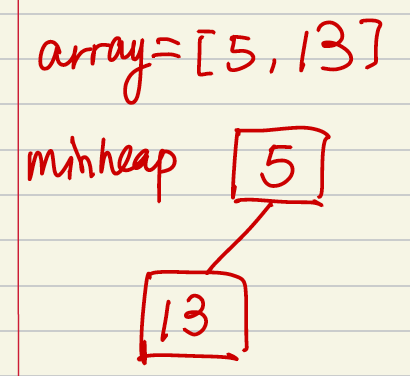 array=[5,13]
minheap 5
13